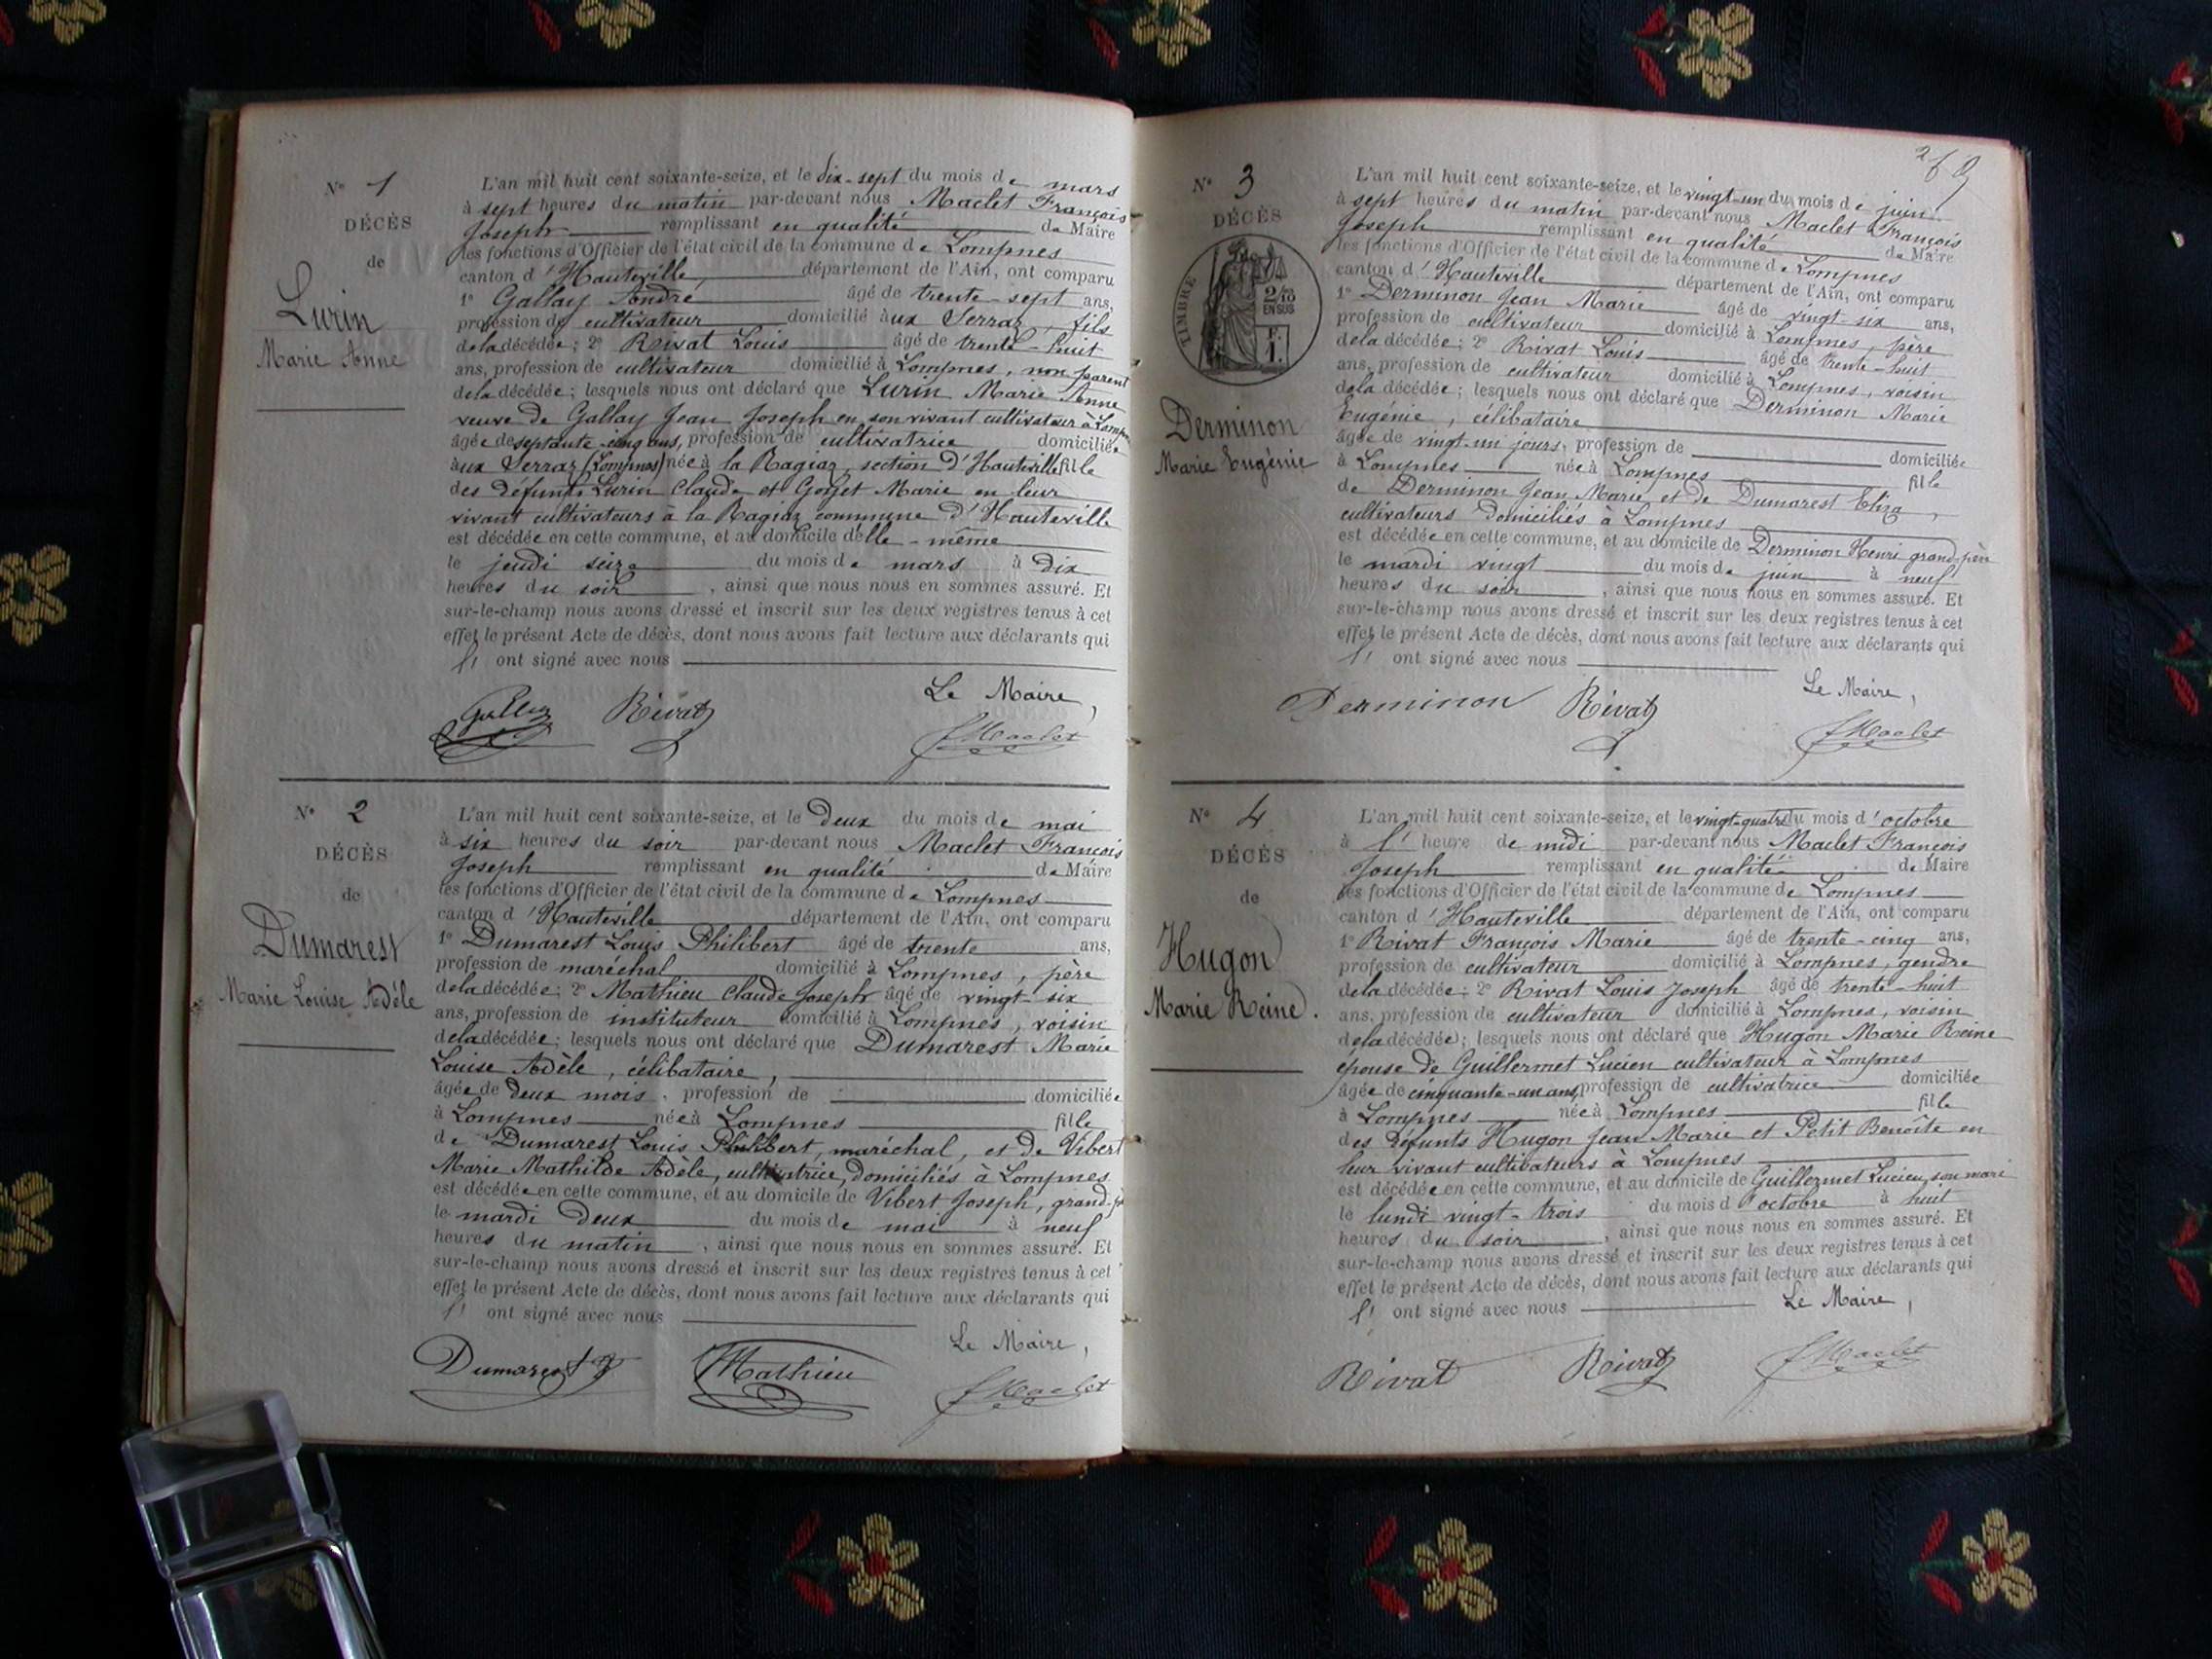 N° 1
DÉCÈS
de
Lurin
Marie Anne
L'an mil huit cent soixante-seize, et le dix-sept du mois de mars
à sept heures du matin par-devant nous Maclet François
Joseph remplissant en qualité de Maire
les fonctions d'Officier de l'état civil de la commune de Lompnes
canton d'Hauteville, département de l'Ain, ont comparu
1° Gallay André âgé de trente-sept ans,
profession de cultivateur domicilié aux Serraz, fils
de la décédée; 2° Rivat Louis âgé de trente-huit
ans, profession de cultivateur domicilié à Lompnes, non parent
de la décédée; lesquels nous ont déclaré que Lurin Marie Anne
veuve de Gallay Jean Joseph en son vivant cultivateur à Lompnes
âgée de septante-cinq ans, profession de cultivatrice domiciliée
aux Serraz (Lompnes) née à la Ragiaz, section d'Hauteville fille
des défunts Lurin Claude et Goyet Marie en leur
vivant cultivateurs à la Ragiaz commune d'Hauteville
est décédée en cette commune, et au domicile d'elle-même
le jeudi seize du mois de mars à dix
heures du soir, ainsi que nous nous en sommes assuré. Et
sur-le-champ nous avons dressé et inscrit sur les deux registres tenus à cet
effet le présent Acte de décès, dont nous avons fait lecture aux déclarants qui
l'ont signé avec nous
Le Maire,
Gallay Rivat FMaclet
N° 2
DÉCÈS
de
Dumarest
Marie Louise Adèle
L'an mil huit cent soixante-seize, et le deux du mois de mai
à six heures du soir par-devant nous Maclet François
Joseph remplissant en qualité de Maire
les fonctions d'Officier de l'état civil de la commune de Lompnes
canton d'Hauteville département de l'Ain, ont comparu
1° Dumarest Louis Philibert âgé de trente ans,
profession de maréchal domicilié à Lompnes, père
de la décédée; 2° Mathieu Claude Joseph âgé de vingt-six
ans, profession de instituteur domicilié à Lompnes, voisin
de la décédée; lesquels nous ont déclaré que Dumarest Marie
Louise Adèle, célibataire,
âgée de deux mois, profession de domiciliée
à Lompnes née à Lompnes fille
de Dumarest Louis Philibert, maréchal, et de Vibert
Marie Mathilde Adèle, cultivatrice, domiciliés à Lompnes
est décédée en cette commune, et au domicile de Vibert Joseph, grand-p
le mardi deux du mois de mai à neuf
heures du matin, ainsi que nous nous en sommes assuré. Et
sur-le-champ nous avons dressé et inscrit sur les deux registres tenus à cet
effet le présent Acte de décès, dont nous avons fait lecture aux déclarants qui
l'ont signé avec nous
Le Maire,
Dumarest Mathieu FMaclet
269
N° 3
DÉCÈS
TIMBRE
2/10
EN SUS
F.
1.
Derminon
Marie Eugénie
L'an mil huit cent soixante-seize, et le vingt-un du mois de juin
à sept heures du matin par-devant nous Maclet François
Joseph remplissant en qualité de Maire
les fonctions d'Officier de l'état civil de la commune de Lompnes
canton d'Hauteville département de l'Ain, ont comparu
1° Derminon Jean Marie âgé de vingt-six ans,
profession de cultivateur domicilié à Lompnes, père
de la décédée; 2° Rivat Louis âgé de trente-huit
ans, profession de cultivateur domicilié à Lompnes, voisin
de la décédée; lesquels nous ont déclaré que Derminon Marie
Eugénie, célibataire
âgée de vingt-un jours, profession de domiciliée
à Lompnes née à Lompnes fille
de Derminon Jean Marie et de Dumarest Eliza,
cultivateurs domiciliés à Lompnes
est décédée en cette commune, et au domicile de Derminon Henri grand-père
le mardi vingt du mois de juin à neuf
heures du soir, ainsi que nous nous en sommes assuré. Et
sur-le-champ nous avons dressé et inscrit sur les deux registres tenus à cet
effet le présent Acte de décès, dont nous avons fait lecture aux déclarants qui
l'ont signé avec nous
Le Maire,
Derminon Rivat FMaclet
N° 4
DÉCÈS
de
Hugon
Marie Reine.
L'an mil huit cent soixante-seize, et le vingt-quatre du mois d'octobre
à l'heure de midi par-devant nous Maclet François
Joseph remplissant en qualité de Maire
les fonctions d'Officier de l'état civil de la commune de Lompnes
canton d'Hauteville département de l'Ain, ont comparu
1° Rivat François Marie âgé de trente-cinq ans,
profession de cultivateur domicilié à Lompnes, gendre
de la décédée; 2° Rivat Louis Joseph âgé de trente-huit
ans, profession de cultivateur domicilié à Lompnes, voisin
de la décédée; lesquels nous ont déclaré que Hugon Marie Reine
épouse de Guillermet Lucien cultivateur à Lompnes
âgée de cinquante-un ans, profession de cultivatrice domiciliée
à Lompnes née à Lompnes fille
des défunts Hugon Jean Marie et Petit Benoîte en
leur vivant cultivateurs à Lompnes
est décédée en cette commune, et au domicile de Guillermet Lucien, son mari
le lundi vingt-trois du mois d'octobre à huit
heures du soir, ainsi que nous nous en sommes assuré. Et
sur-le-champ nous avons dressé et inscrit sur les deux registres tenus à cet
effet le présent Acte de décès, dont nous avons fait lecture aux déclarants qui
l'ont signé avec nous Le Maire,
Rivat Rivat FMaclet